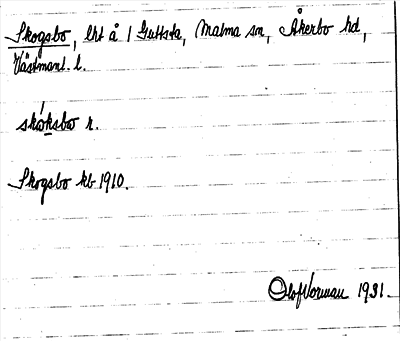 Skogsbo, lht å 1 Guttsta, Malma sn, Åkerbo hd,
Västmanl. l.
skóksbω r.
Skogsbo kb 1910.
Olof Norman 1931.